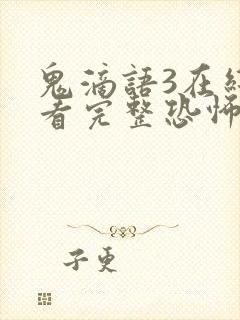 鬼滴語3在線
看完整恐怖
子更